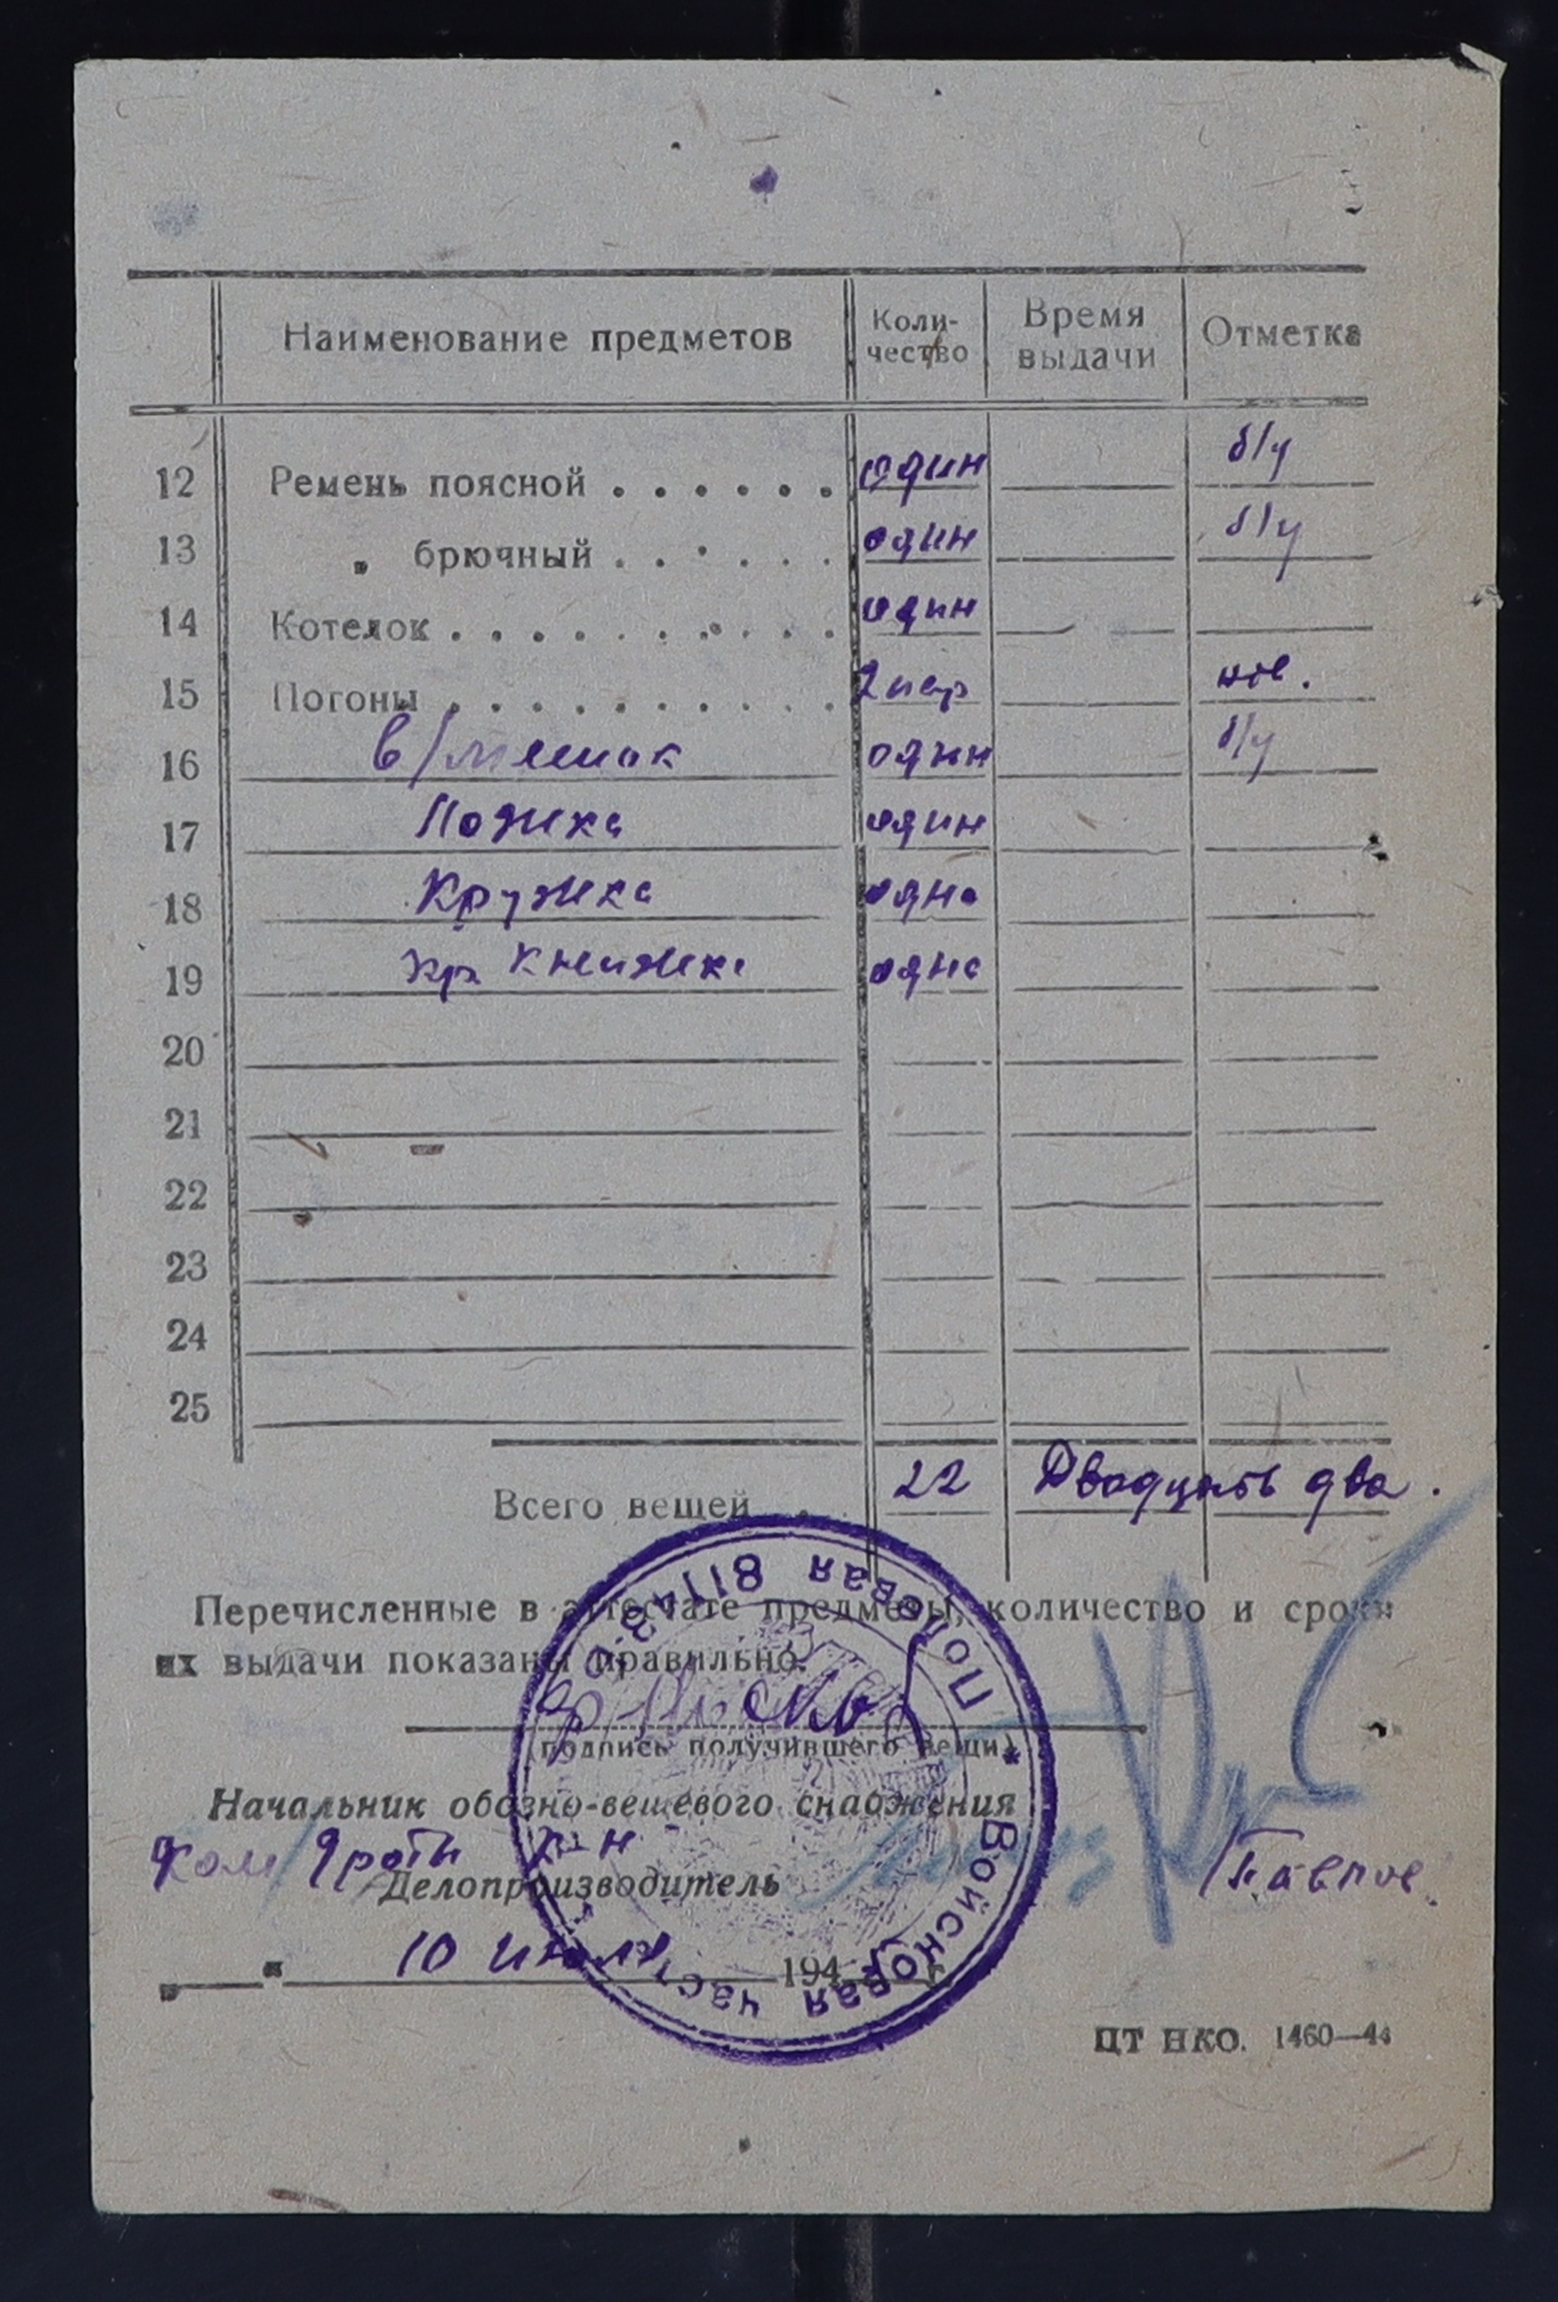 Наименование предметов
Коли-
чество
Время
выдачи
Отметка
12 Ремень поясной . . . . . . один б/у
13 „ брючный . . . . . . один б/у
14 Котелок . . . . . . . . . . один
15 Погоны . . . . . . . . . . 2 пар нов.
16 в/мешок один б/у
17 Ложка один
18 Кружка одна
19 кр книжка одна
20
21
22
23
24
25
Всего вещей . . 22 Двадцать два.
Перечисленные в аттестате предметы, количество и сроки
их выдачи показаны правильно.
(подпись получившего вещи)
Начальник обозно-вещевого снабжения
Ком роты
Делопроизводитель
10 июля 194 г.
Полевая 81143
Войсковая часть
ЦТ НКО. 1460—44